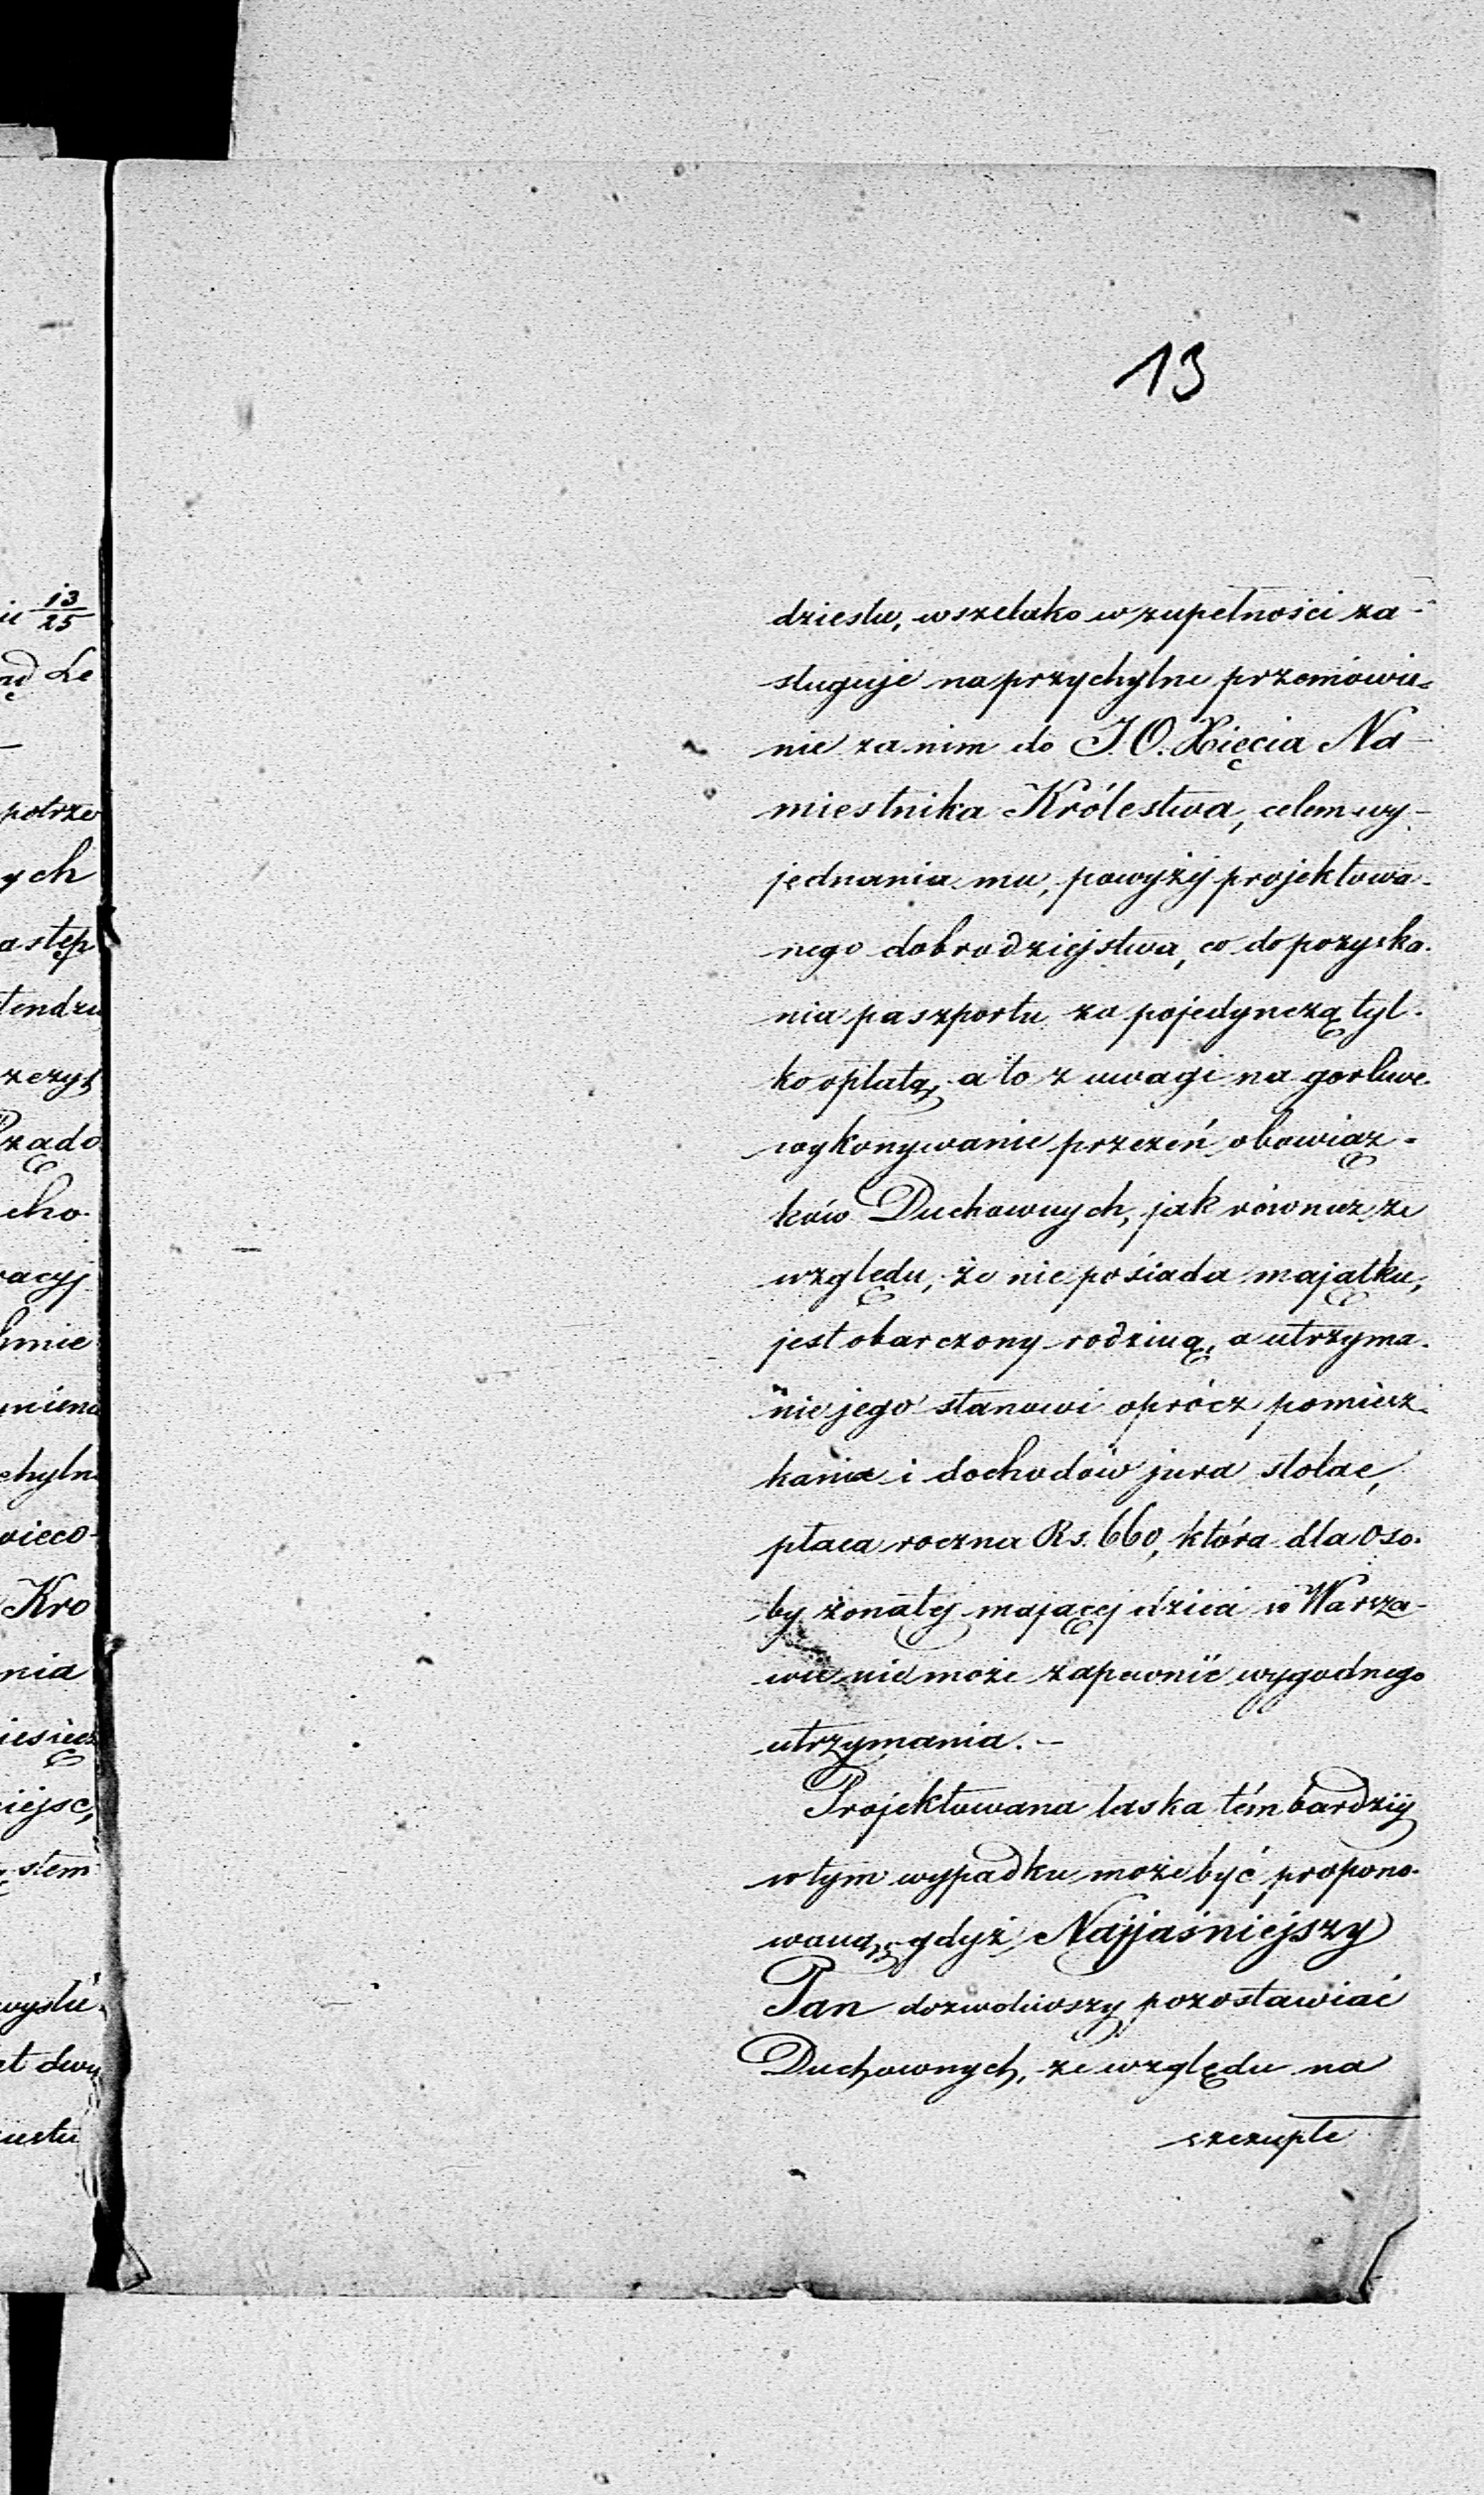 13
dziestu, wszelako w zupełności za-
sługuje na przychylne przemówie-
nie za nim do J. O. Xięcia Na-
miestnika Królestwa, celem wy-
jednania mu, powyżéj projektowa-
nego dobrodziejstwa, co do pozyska-
nia paszportu za pojedynczą tyl-
ko opłatą, a to z uwagi na gorliwe
wykonywanie przezeń obowiąz-
ków Duchownych, jak równiez ze
względu, że nie posiada majątku,
jest obarczony rodziną, a utrzyma-
nie jego stanowi oprócz pomiesz-
kania i dochodów jura stolae,
płaca roczna Rs. 660, która dla oso-
by żonatéj mającéj dzieci w Warsza-
wie nie może zapewnić wygodnego
utrzymania. —
Projektowana łaska tém bardziéj
w tym wypadku może być propono-
waną, gdyż Najjaśniejszy
Pan dozwoliwszy pozostawiać
Duchownych, ze względu na
szczupłe
13
25
Le
potrze
ych
astęp
zczys
Rządo
cho
racyj
chyln
Kro
nia
miesięc